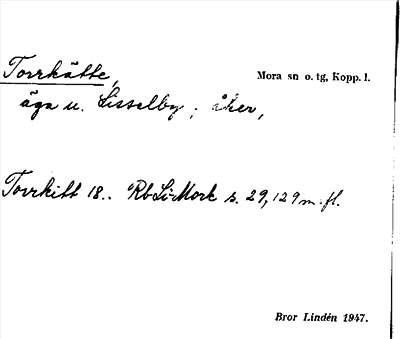 Torrkätte, Mora sn o. tg, Kopp. l.
äga u. Lisselby; åker,
Torrkitt 18.. Rb Li-Mork s. 29, 129 m. fl.
Bror Lindén 1947.